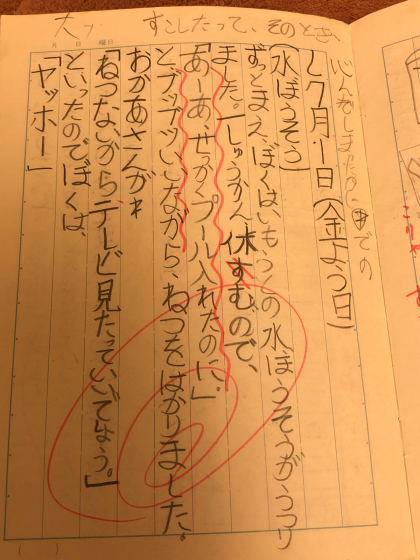 すこしたって、そのとき、
月　日　曜日
7月1日(金よう日)
(水ぼうそう)
ずっとまえ、ぼくは、いもうとの水ぼうそうがうつり
ました。一しゅうかん休すむので、
「あーあ、せっかくプール入れたのに。」
とブツブツいいながら、ねつをはかりました。
おかあさんが
「ねつないからテレビ見たっていいでしょう。」
といったのでぼくは、
「ヤッホー」